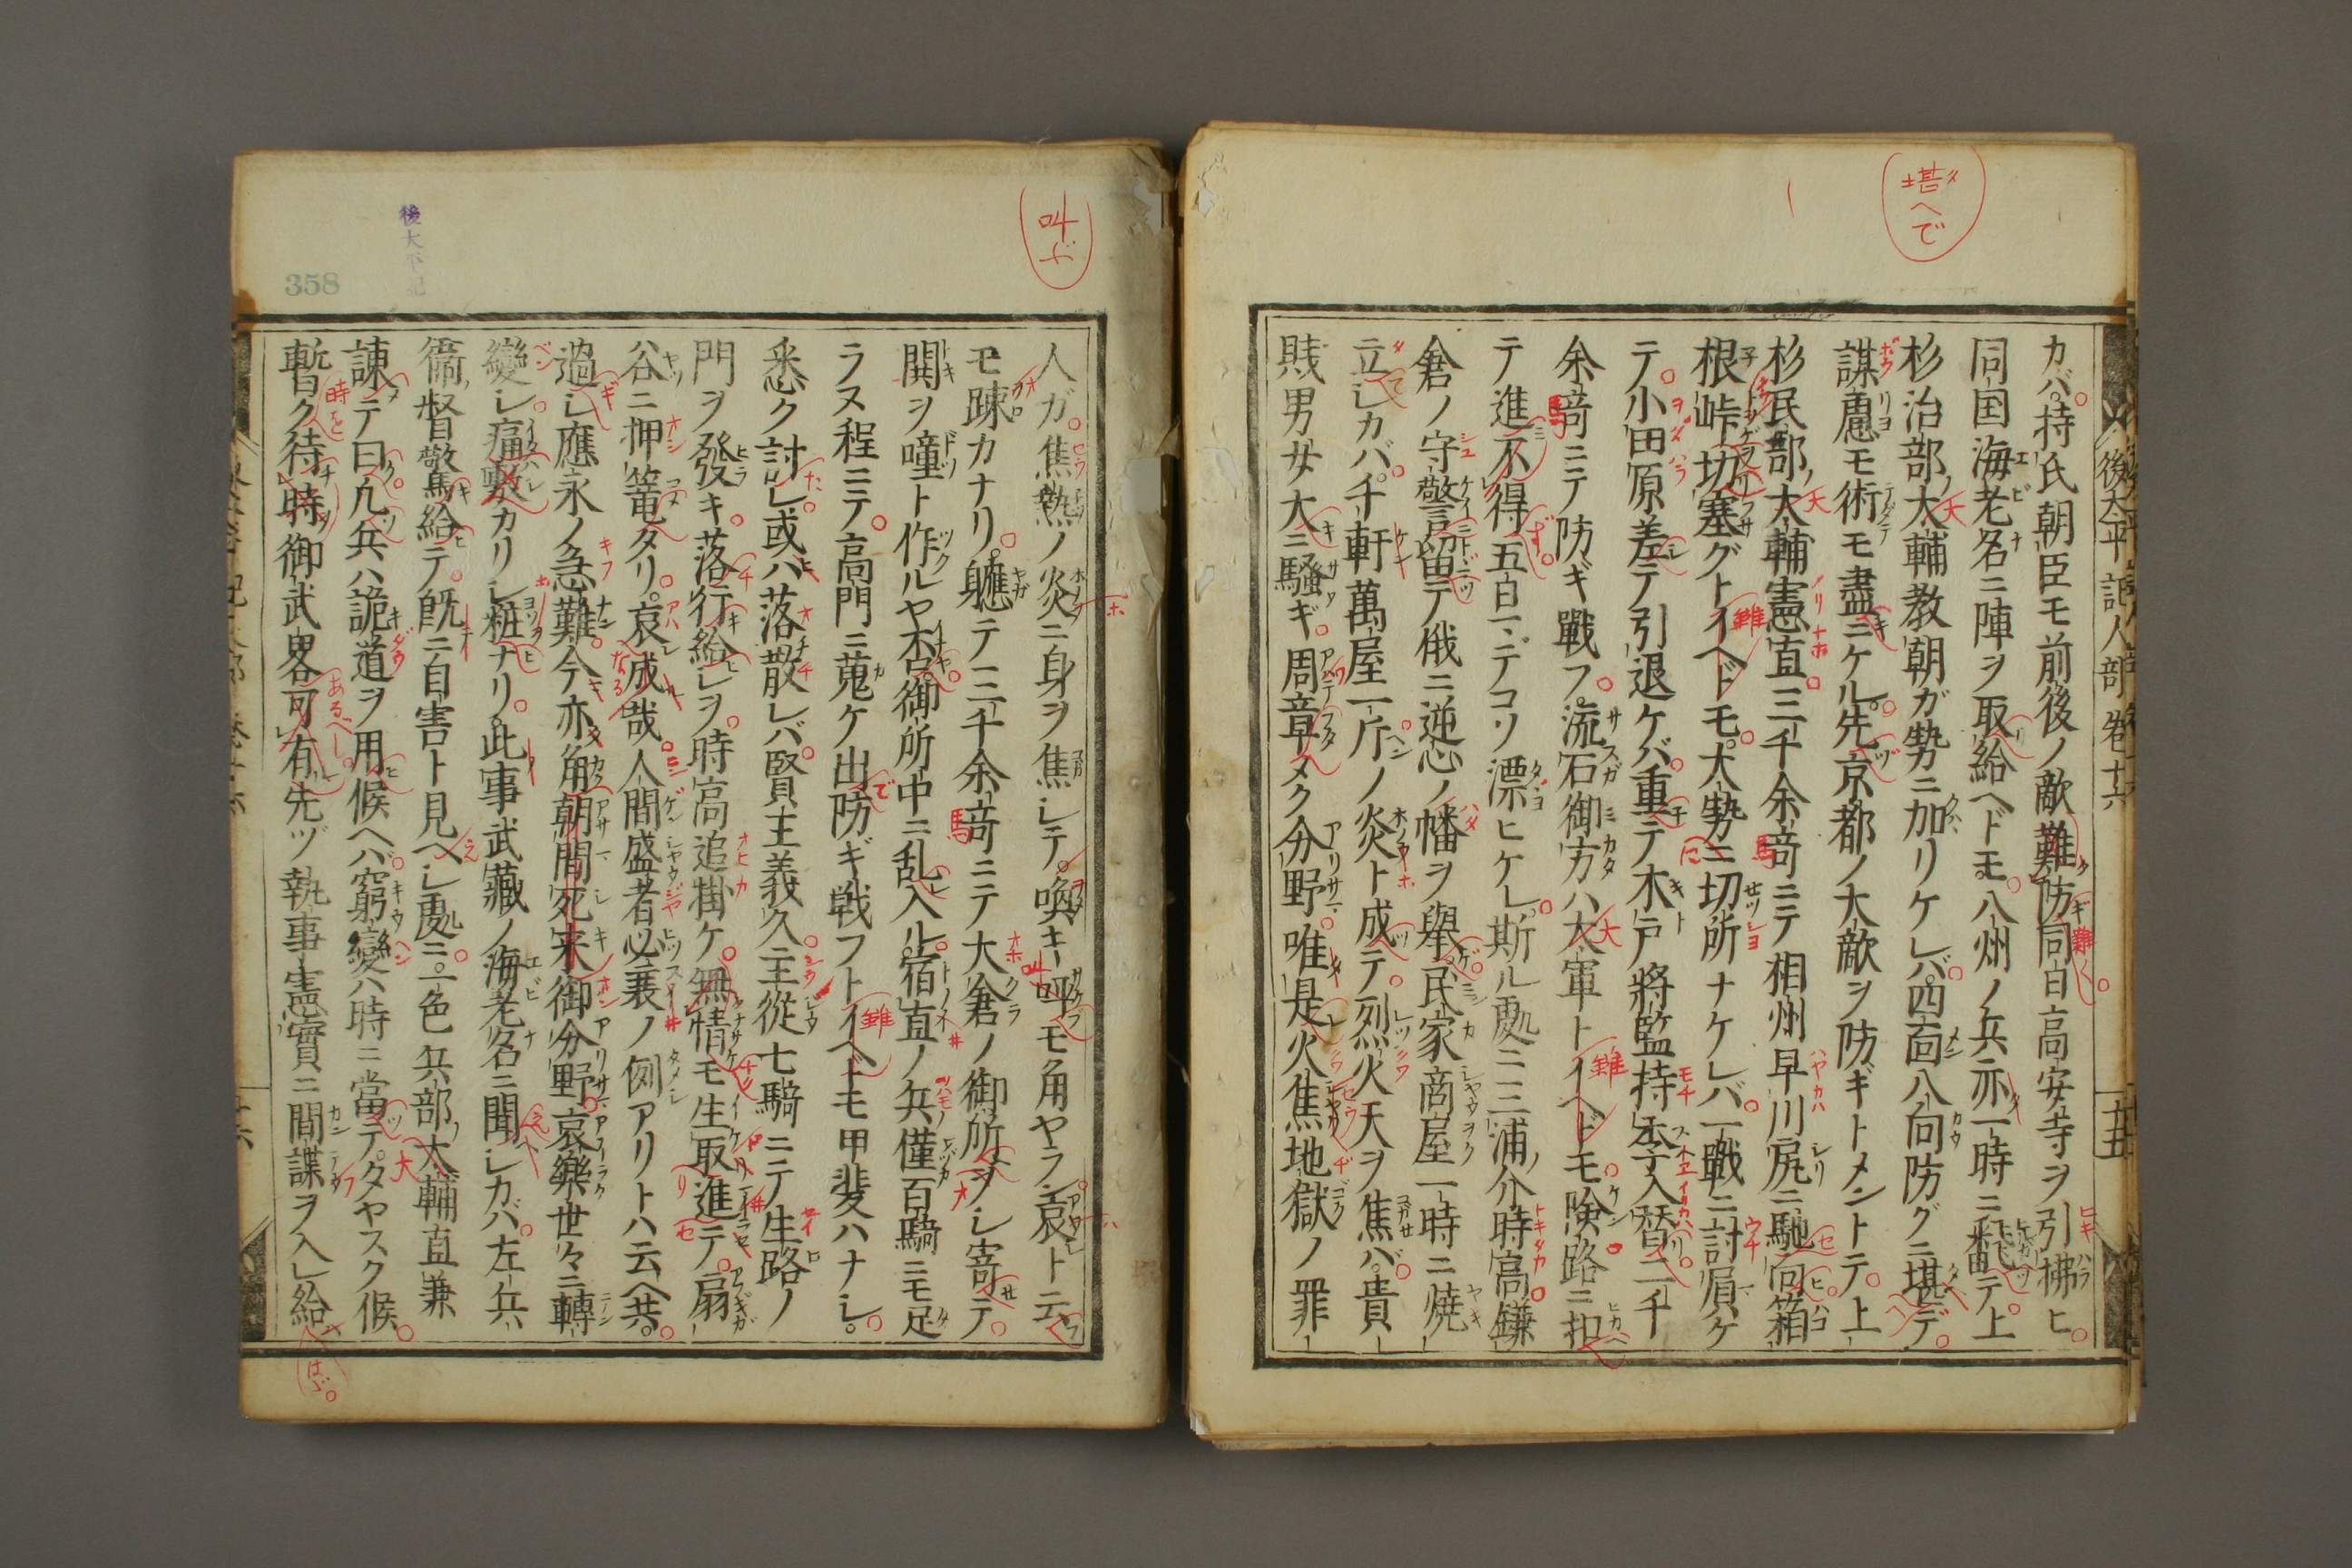 堪へで
後太平記人部 巻十六
十五
カバ持氏朝臣モ前後ノ敵難防同白高安寺ヲ引拂ヒ
同国海老名ニ陣ヲ取給ヘドモ八州ノ兵亦一時ニ飜テ上
杉治部大輔教朝ガ勢ニ加リケレバ四面八向防グニ堪デ
謀慮モ術モ盡ニケル先京都ノ大敵ヲ防ギトメントテ上
杉民部大輔憲直三千余竒ニテ相州早川尻ニ馳向箱
根峠切塞グトイヘドモ大勢ニ切所ナケレバ一戰ニ討屓ケ
テ小田原差テ引退ケバ重テ木戸將監持季入替二千
余竒ニテ防ギ戰フ流石御方ハ大軍トイヘドモ険路ニ扣
テ進不得五百ニテコソ漂ヒケレ斯ル處ニ三浦介時高鎌
倉ノ守警畄テ俄ニ逆心ノ幡ヲ舉民家商屋一時ニ焼
立シカバ千軒萬屋一片ノ炎ト成テ烈火天ヲ焦バ貴
賎男女大ニ騷ギ周章メク分野唯是火焦地獄ノ罪
叫ぶ
後太平記
358
人ガ焦熱ノ炎ニ身ヲ焦レテ喚キ呼モ角ヤラン哀ト云
モ踈カナリ軈テ三千余竒ニテ大倉ノ御所ヲシ寄テ
鬨ヲ噇ト作ルヤ否御所中ニ乱入ル宿直ノ兵僅百騎ニモ足
ラヌ程ニテ高門ニ蒐ケ出防ギ戦フトイヘドモ甲斐ハナシ
悉ク討レ或ハ落散レバ賢王義久主從七騎ニテ生路ノ
門ヲ發キ落行給シヲ時高追掛ケ無情モ生取進テ扇
谷ニ押篭タリ哀成哉人間盛者必衰ノ例アリトハ云ヘ共
過シ應永ノ急難今亦角朝間死来御分野哀樂世々ニ轉
變シ痛敷カリシ粧ナリ此事武藏ノ海老名ニ聞シカバ左兵
衞督驚給テ既ニ自害ト見ヘシ處ニ一色兵部大輔直兼
諌テ曰凢兵ハ詭道ヲ用候ヘバ窮變ハ時ニ當テタヤスク候
暫ク待時御武畧可有先ヅ執事憲實ニ間諜ヲ入レ給